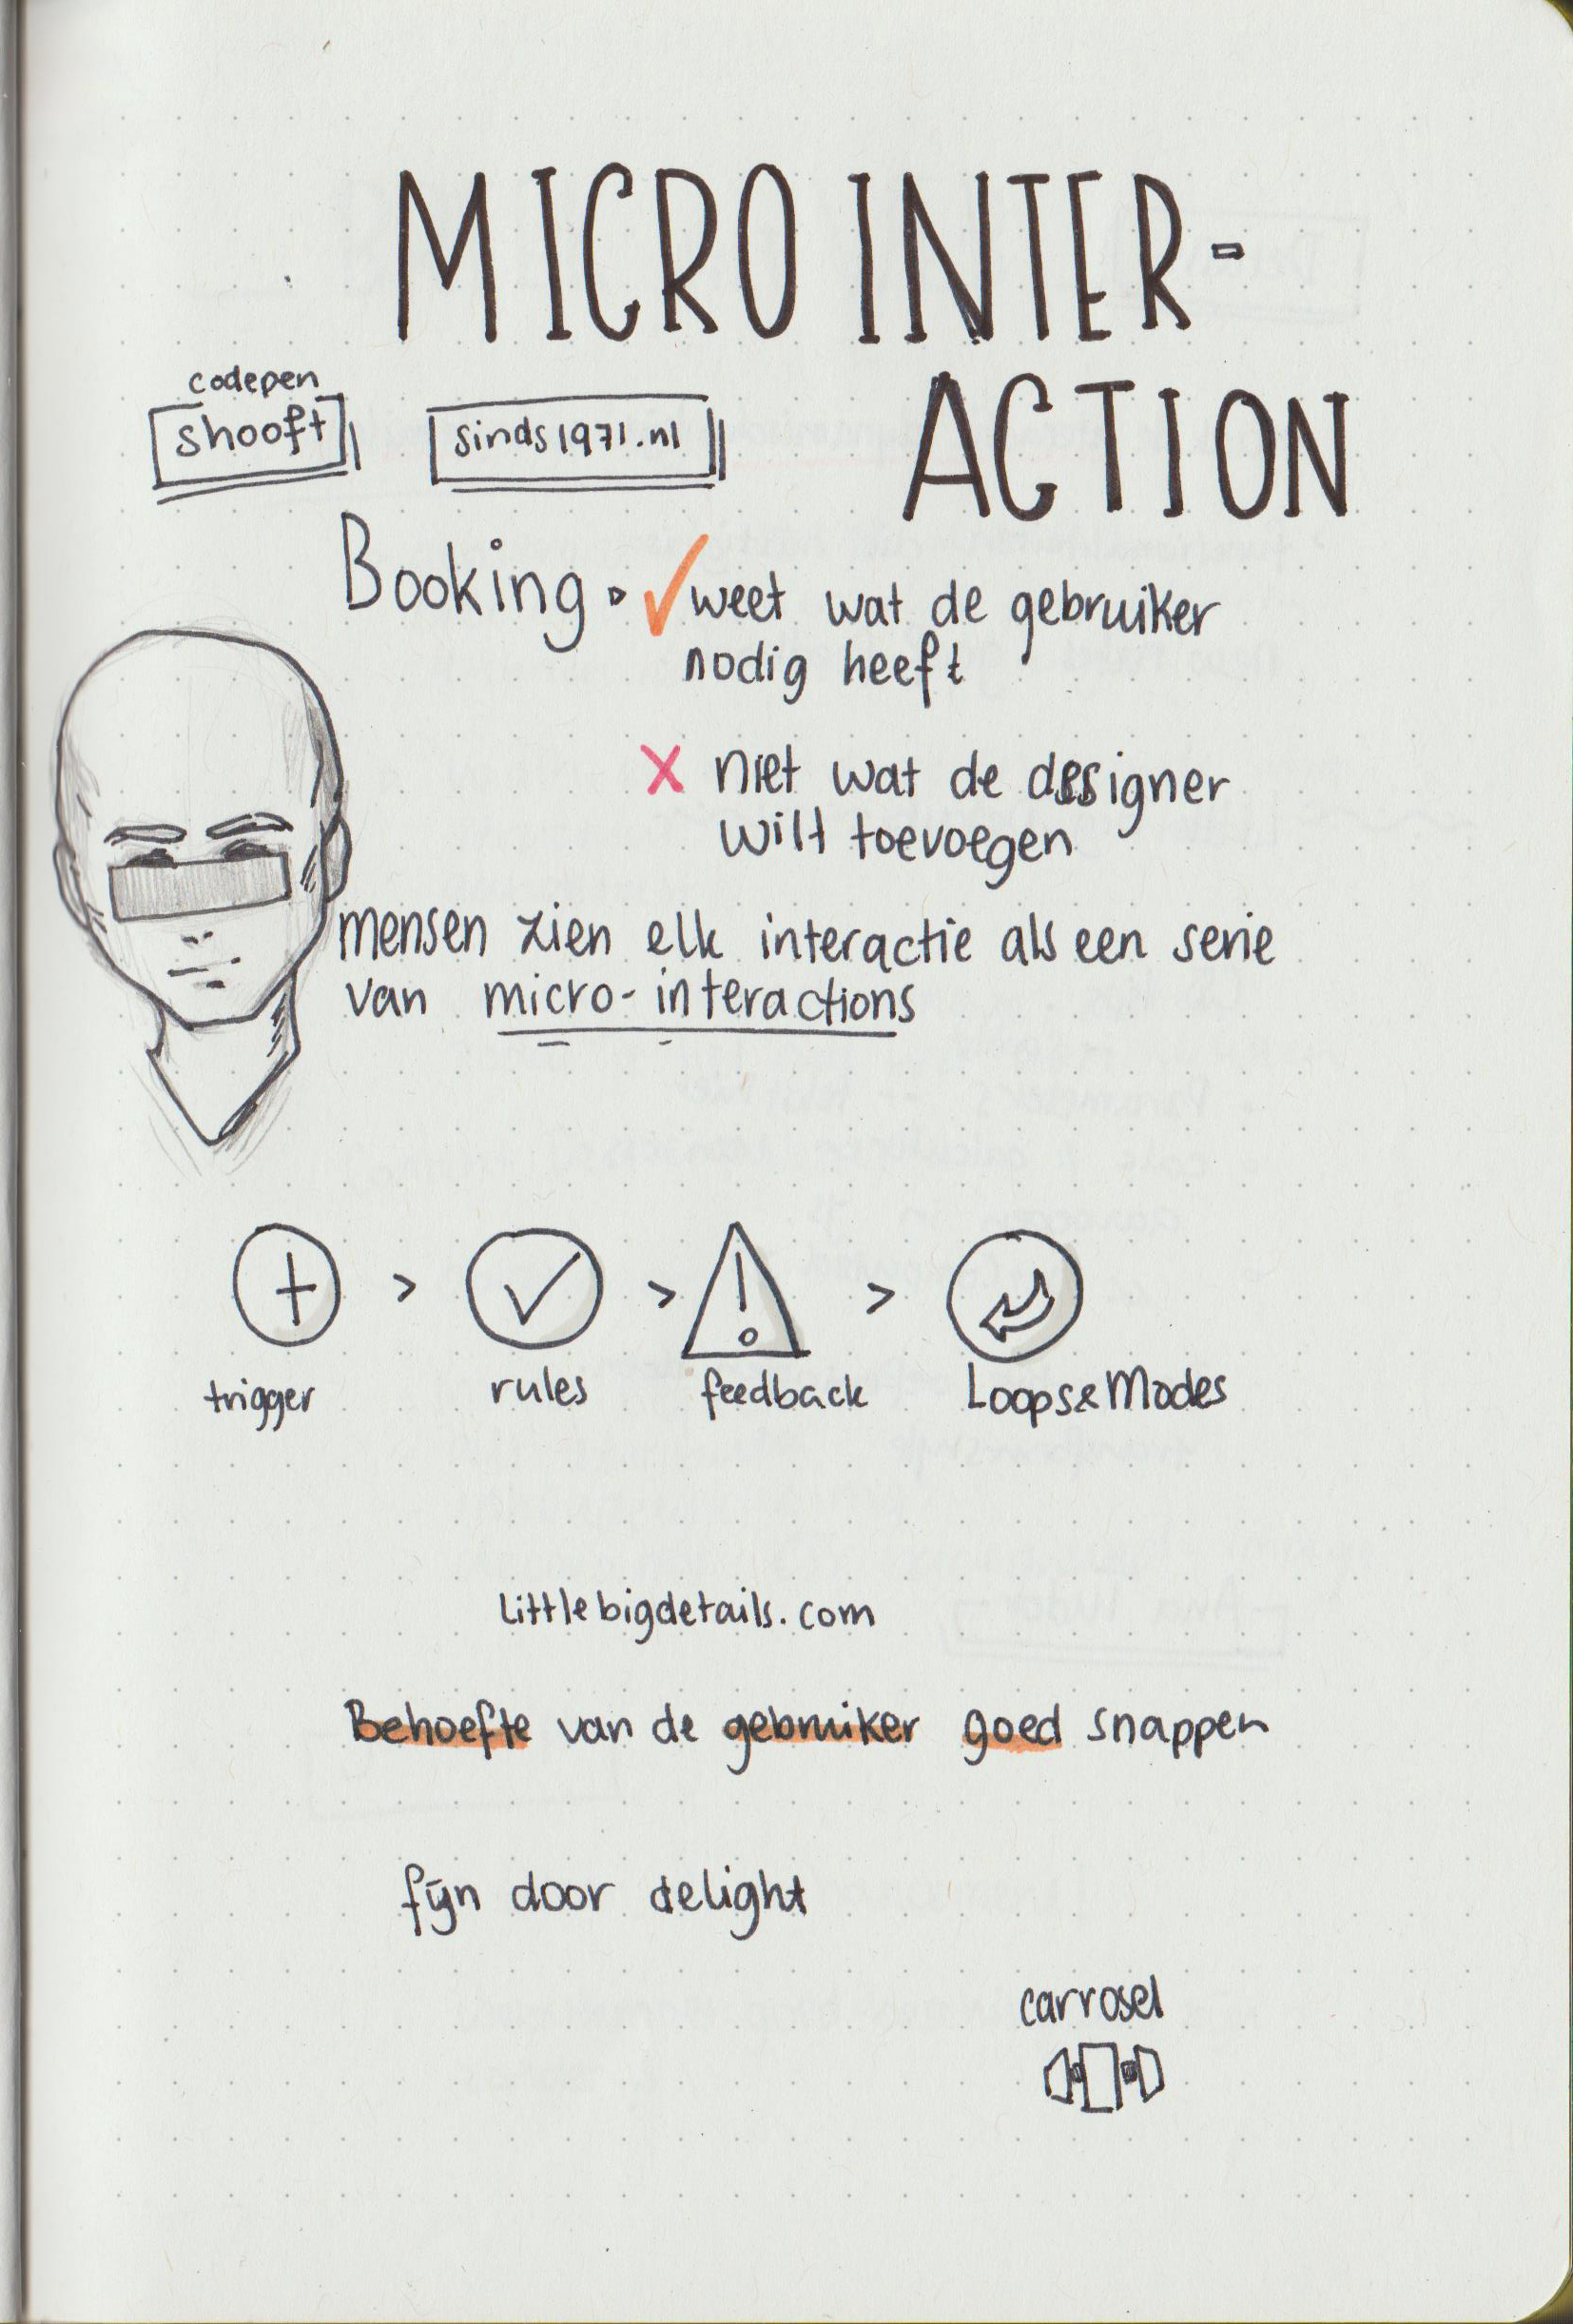 MICRO INTER-
ACTION
codepen
shooft
sinds1971.nl
Booking weet wat de gebruiker
nodig heeft
X niet wat de designer
wilt toevoegen
mensen zien elk interactie als een serie
van micro-interactions
> > >
trigger rules feedback Loops&Modes
Littlebigdetails.com
Behoefte van de gebruiker goed snappen
fijn door delight
carrosel